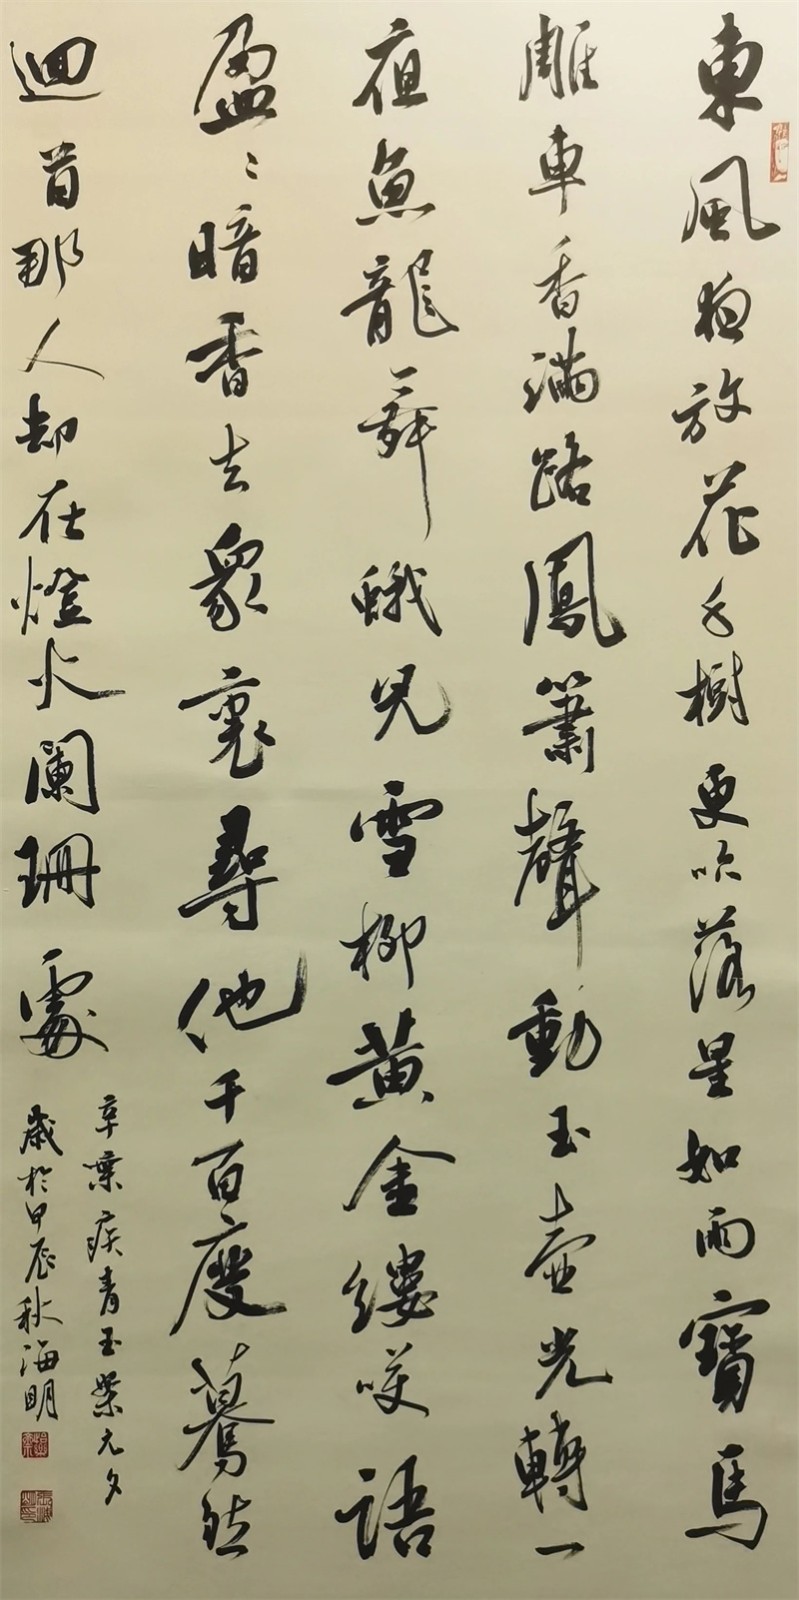 東風夜放花千樹更吹落星如雨寶馬
雕車香滿路鳳簫聲動玉壺光轉一
夜魚龍舞蛾兒雪柳黃金縷笑語
盈〻暗香去眾裏尋他千百度驀然
迴首那人却在燈火闌珊處
辛棄疾青玉案元夕
歲於甲辰秋海明